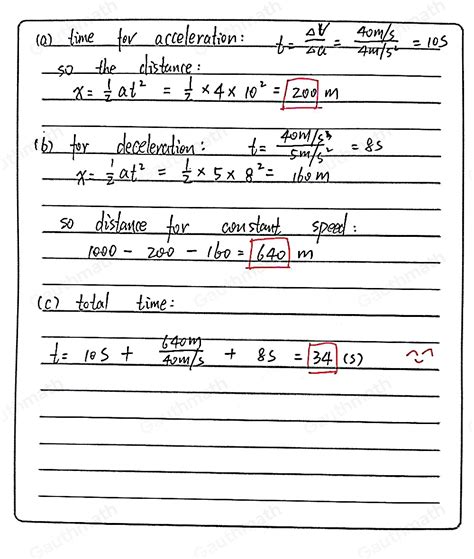 (a) time for acceleration: t = ΔV/Δa = 40m/s / 4m/s² = 10s
so the distance:
x = 1/2 at² = 1/2 × 4 × 10² = 200 m
(b) for deceleration: t = 40m/s / 5m/s² = 8s
x = 1/2 at² = 1/2 × 5 × 8² = 160m
so distance for constant speed:
1000 - 200 - 160 = 640 m
(c) total time:
t = 10s + 640m / 40m/s + 8s = 34 (s)
Gauthmath